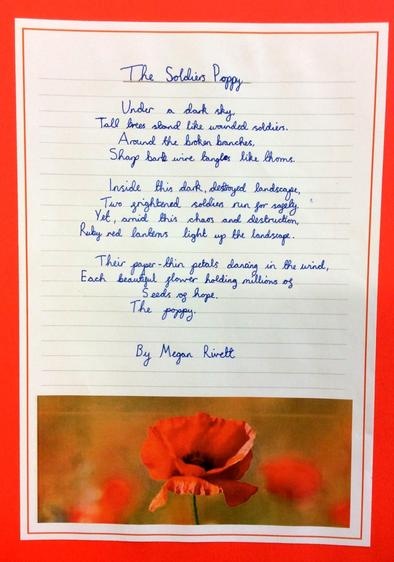 The Soldiers Poppy
Under a dark sky,
Tall trees stand like wounded soldiers.
Around the broken branches,
Sharp barb wire tangles like thorns.
Inside this dark, destroyed landscape,
Two frightened soldiers run for safety.
Yet, amid this chaos and destruction,
Ruby red lanterns light up the landscape.
Their paper-thin petals dancing in the wind,
Each beautiful flower holding millions of
Seeds of hope.
The poppy.
By Megan Rivett